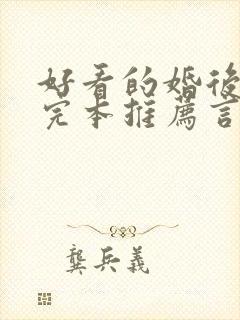 好看的婚後
完本推薦言
龔兵義